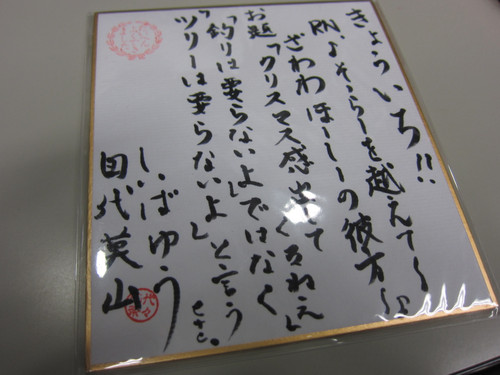 きょういち!!
RN.♪そっらーを越えて〜♪
ざわわほーしーの彼方〜
お題「クリスマス感出してくるねぇ」
「釣りは要らないよ」ではなく
「ツリーは要らないよ」と言う
しいばゆう
田代英山